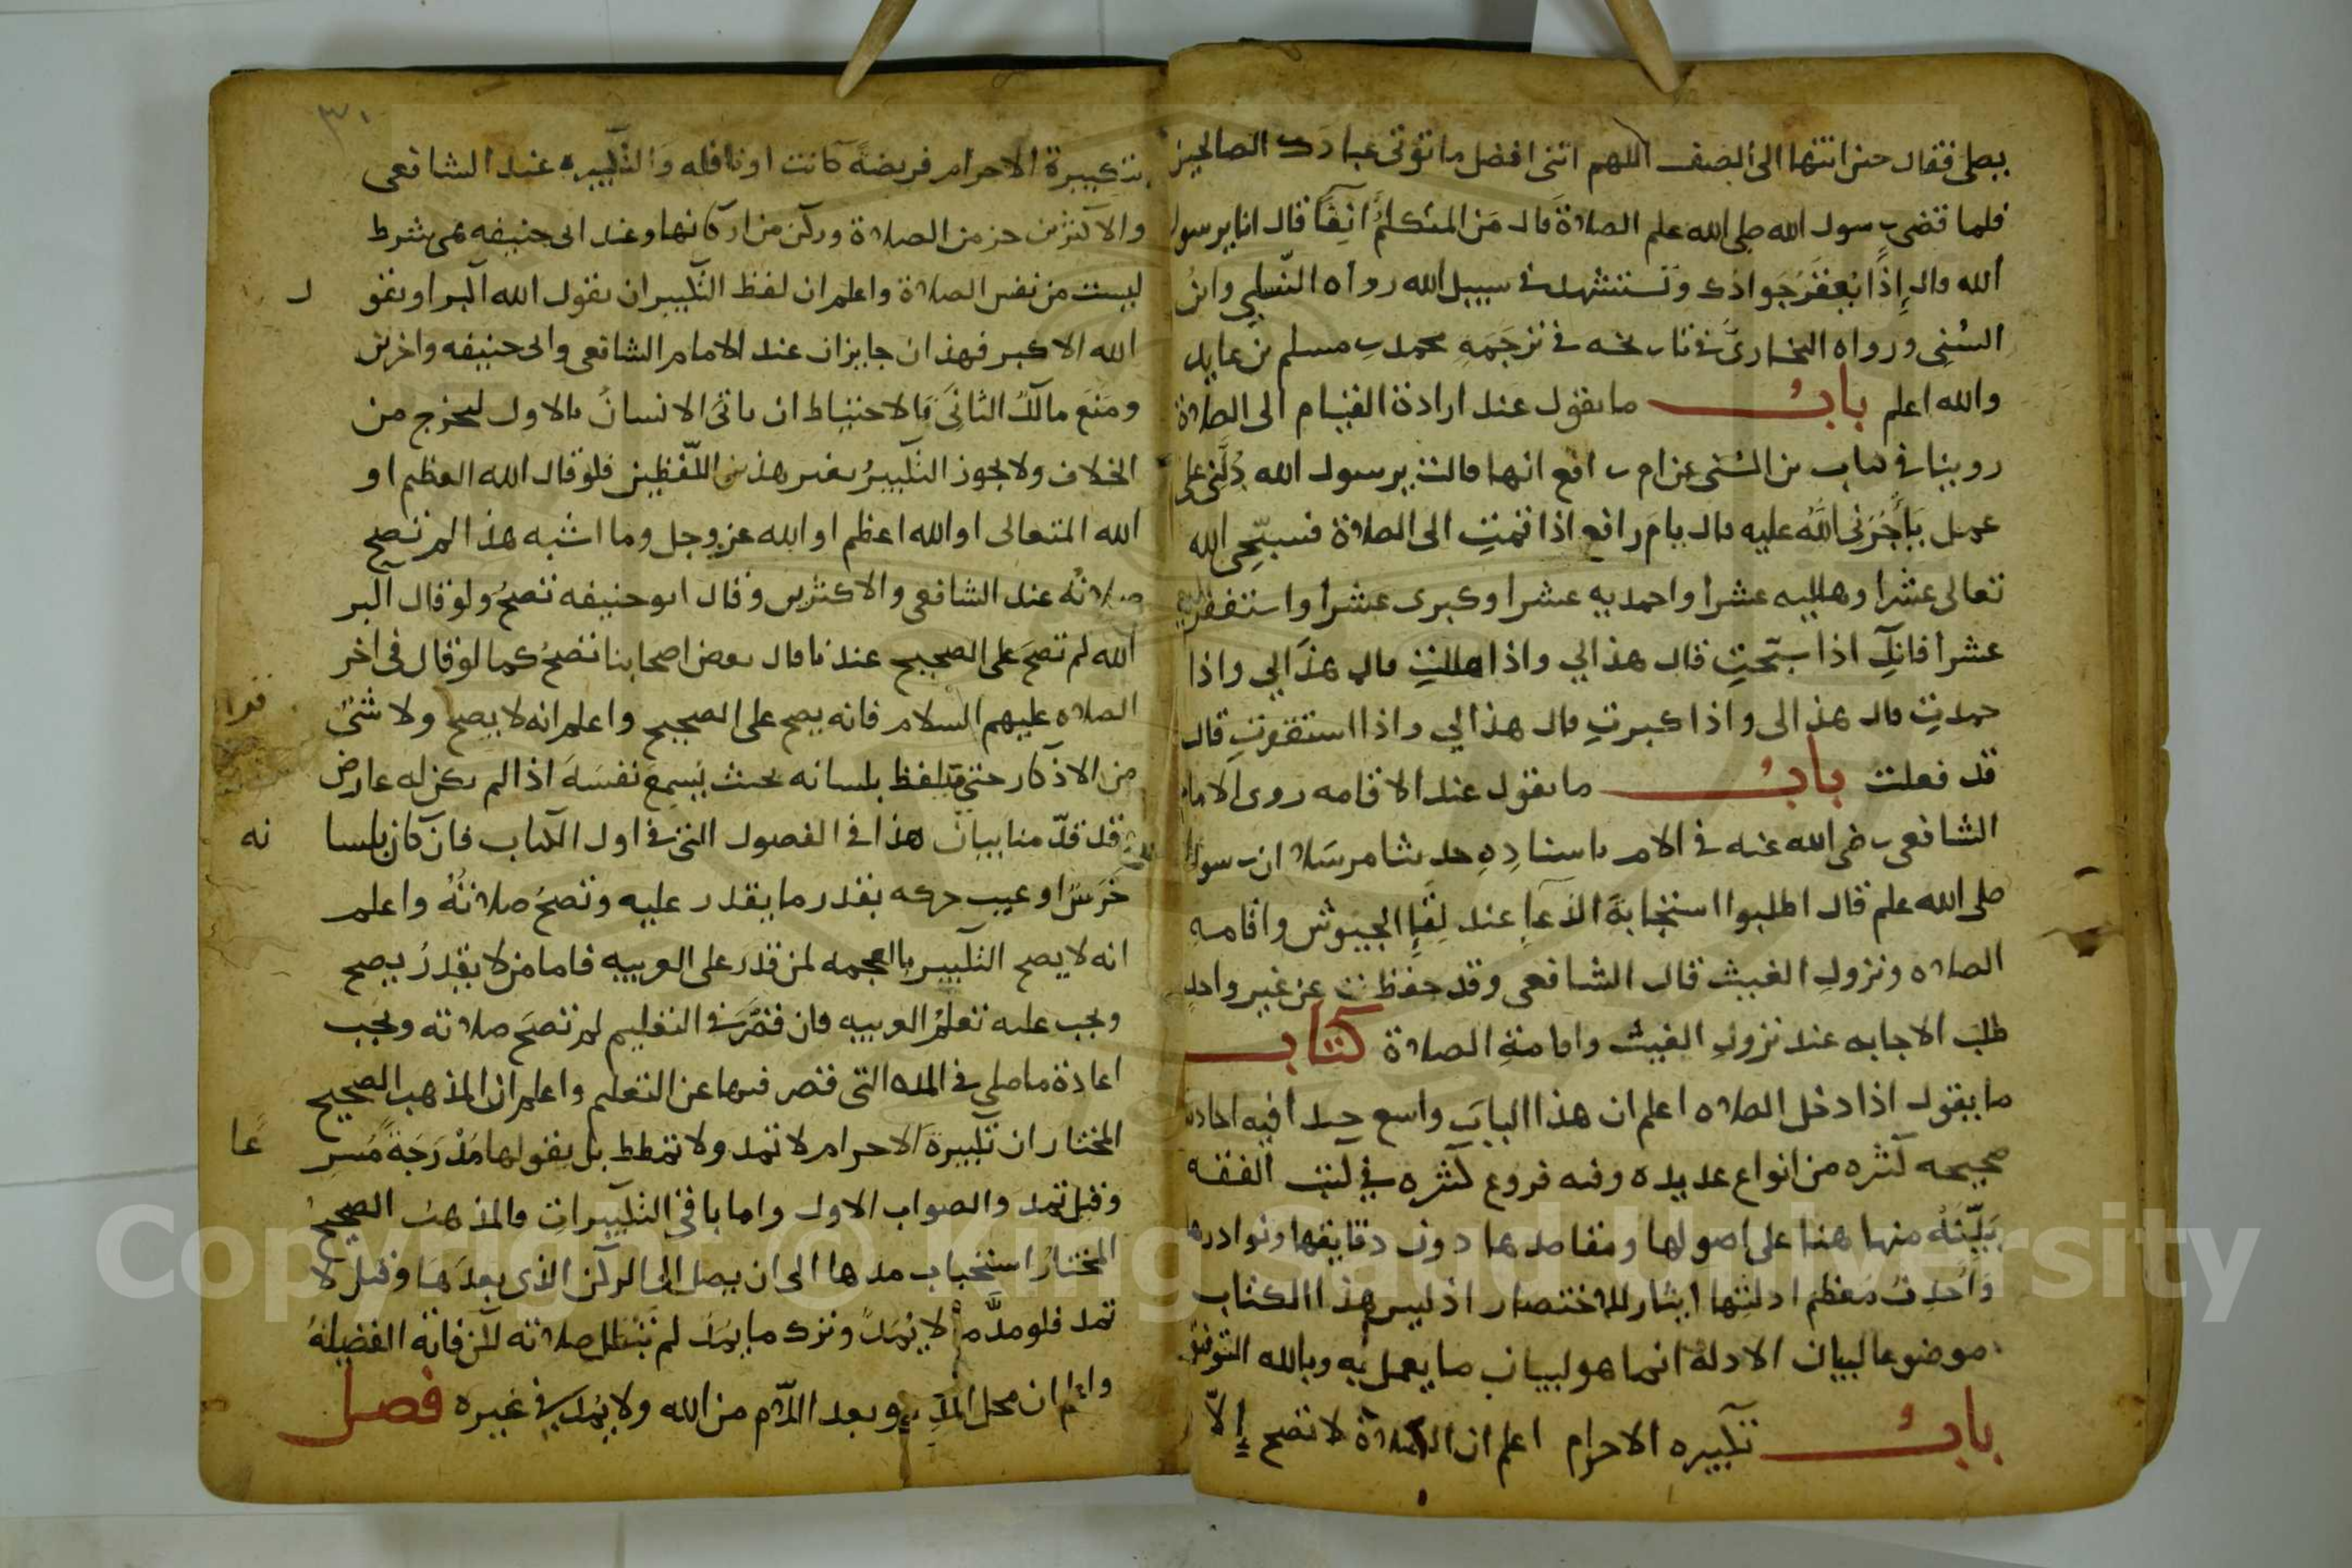 يصلى فقال حين انتها الى الصف اللهم اتنى افضل ما تؤتى عبادك الصالحين
فلما قضى رسول الله صلى الله علم الصلاة قال مَن المتكلمُ انِفًا قال انا يرسول
الله قال إذًا يُعقَرُ جَوادك وَتستشهد في سبيل الله رواه النسلي وابن
السُني ورواه البخاريّ في تاريخه في ترجَمَةِ محمد بن مسلم بن عايد
والله اعلم بابُ ما يقول عند ارادة القيام الى الصلاة
روينا في كتاب بن السُنى عن ام رافع انها قالت يرسول الله دُلّنى على
عمل يَاْجُرَنى اللهُ عليه قال يام رافع اذا قمتِ الى الصلاة فسبّحى الله
تعالى عشرا وهلليه عشرا واحمديه عشرا وكبرى عشرا واستغفريه
عشرا فانكِ اذا سبّحتِ قال هذا لي واذا هللتِ قال هذا لي واذا
حمدتِ قال هذا لى واذا كبرتِ قال هذا لي واذا استغفرتِ قال
قد فعلت بابُ ما يقول عند الاقامه روى الامام
الشافعى رضى الله عنه في الام باسنادِهِ حديثا مرسَلا ان رسول
صلى الله علم قال اطلبوا استجابةَ الدّعآِ عند لِقَآِ الجيوش واقامةِ
الصلاه ونزولِ الغيث قال الشافعى وقد حفظت عن غير واحدٍ
طلبَ الاجابه عند نزولِ الغيث واقامةِ الصلاة كتاب
ما يقول اذا دخل الصلاه اعلم ان هذا البابَ واسع جدا فيه احاديث
صحيحه كثره من انواع عديده وفه فروع كثره في كتب الفقه
نبّيَنهُ منها هنا على اصولها ومقاصدها دون دقايقها ونوادرها
وَاحُذِفُ مُعظم ادلتها ايثار للاختصار اذ ليس هذا الكتاب
موضوعا لبيان الادله انما هو لبيان ما يعمل به وبالله التوفيق
بابُ تكبيره الاحرام اعلم ان الصلاة لا تصح إلاّ
٣٠
بتكبيرة الاحرام فريضةً كانت او نافله والتكبيره عند الشافعى
والاكثرين جز من الصلاة وركن من اركانها وعند ابى حنيفه هى شرط
ليست من نفس الصلاة واعلم ان لفظ التكبير ان يقول الله اكبر او يقو ل
الله الاكبر فهذان جايزان عند الامام الشافعى وابى حنيفه واخرين
ومَنعَ مالكُ الثانىَ فالاحتياط ان ياتىَ الانسانُ بالاول ليخرج من
الخلاف ولا يجوز التكبيرُ بغير هذين اللّفظين فلو قال الله العظيم او
الله المتعالى او الله اعظم او الله عز وجل وما اشبه هذا لم تصح
صلاتُه عند الشافعى والاكثرين وقال ابو حنيفه تصحُ ولو قال اكبر
الله لم تصح على الصحيح عندنا وقال بعض اصحابنا تصحُ كما لو قال في اخر
الصلاه عليهم السلام فانه يصح على الصحيح واعلم انه لا يصح ولا شئُ
من الاذكار حتى يتلفظ بلسانه بحيث يَسمِع نفسَهَ اذا لم يكن له عارض
وقد قدّمنا بيان هذا في الفصول التى في اول الكتاب فان كان بلسا نه
خَرَسٌ او عيب حركه بقدر ما يقدر عليه وتصحُ صلاتُهُ واعلم
انه لا يصح التكبير بالعجمه لمن قدر على العربيه فاما من لا يقدرُ يصح
ويجب عليه تعلمُ العربيه فان قصَّرَ في التعليم لم تصحَ صلاته ويجب
اعادة ما صلى في المده التى قصر فيها عن التعلم واعلم ان المذهب الصحيح
المختار ان تكبيرةَ الاحرام لا تمد ولا تمطط بل يقولها مُدْرَجَةً مُسر عًا
وقيل تمد والصواب الاول واما باقى التكبيراتِ فالمذهبُ الصحيحُ
المختارُ استحباب مدها الى ان يصل الى الركن الذى بعدَها وقيل لا
تمد فلو مدَّ ما لا يُمَدُ وترك ما يُمَدُ لم تبطل صلاته لكن فاته الفضيلهُ
واعلم ان محل المدِّ وبعد اللّام من الله ولا يُمَدُ في غيره فصل